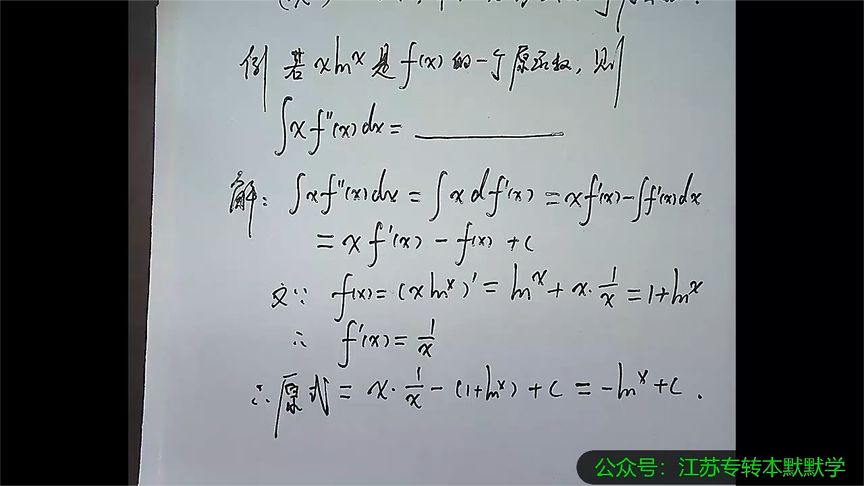 例 若 x ln x 是 f(x) 的一个原函数, 则
∫x f''(x) dx = ________
解: ∫x f''(x) dx = ∫x d f'(x) = x f'(x) - ∫f'(x) dx
= x f'(x) - f(x) + C
又∵ f(x) = (x ln x)' = ln x + x · 1/x = 1 + ln x
∴ f'(x) = 1/x
∴ 原式 = x · 1/x - (1 + ln x) + C = - ln x + C .
公众号: 江苏专转本默默学